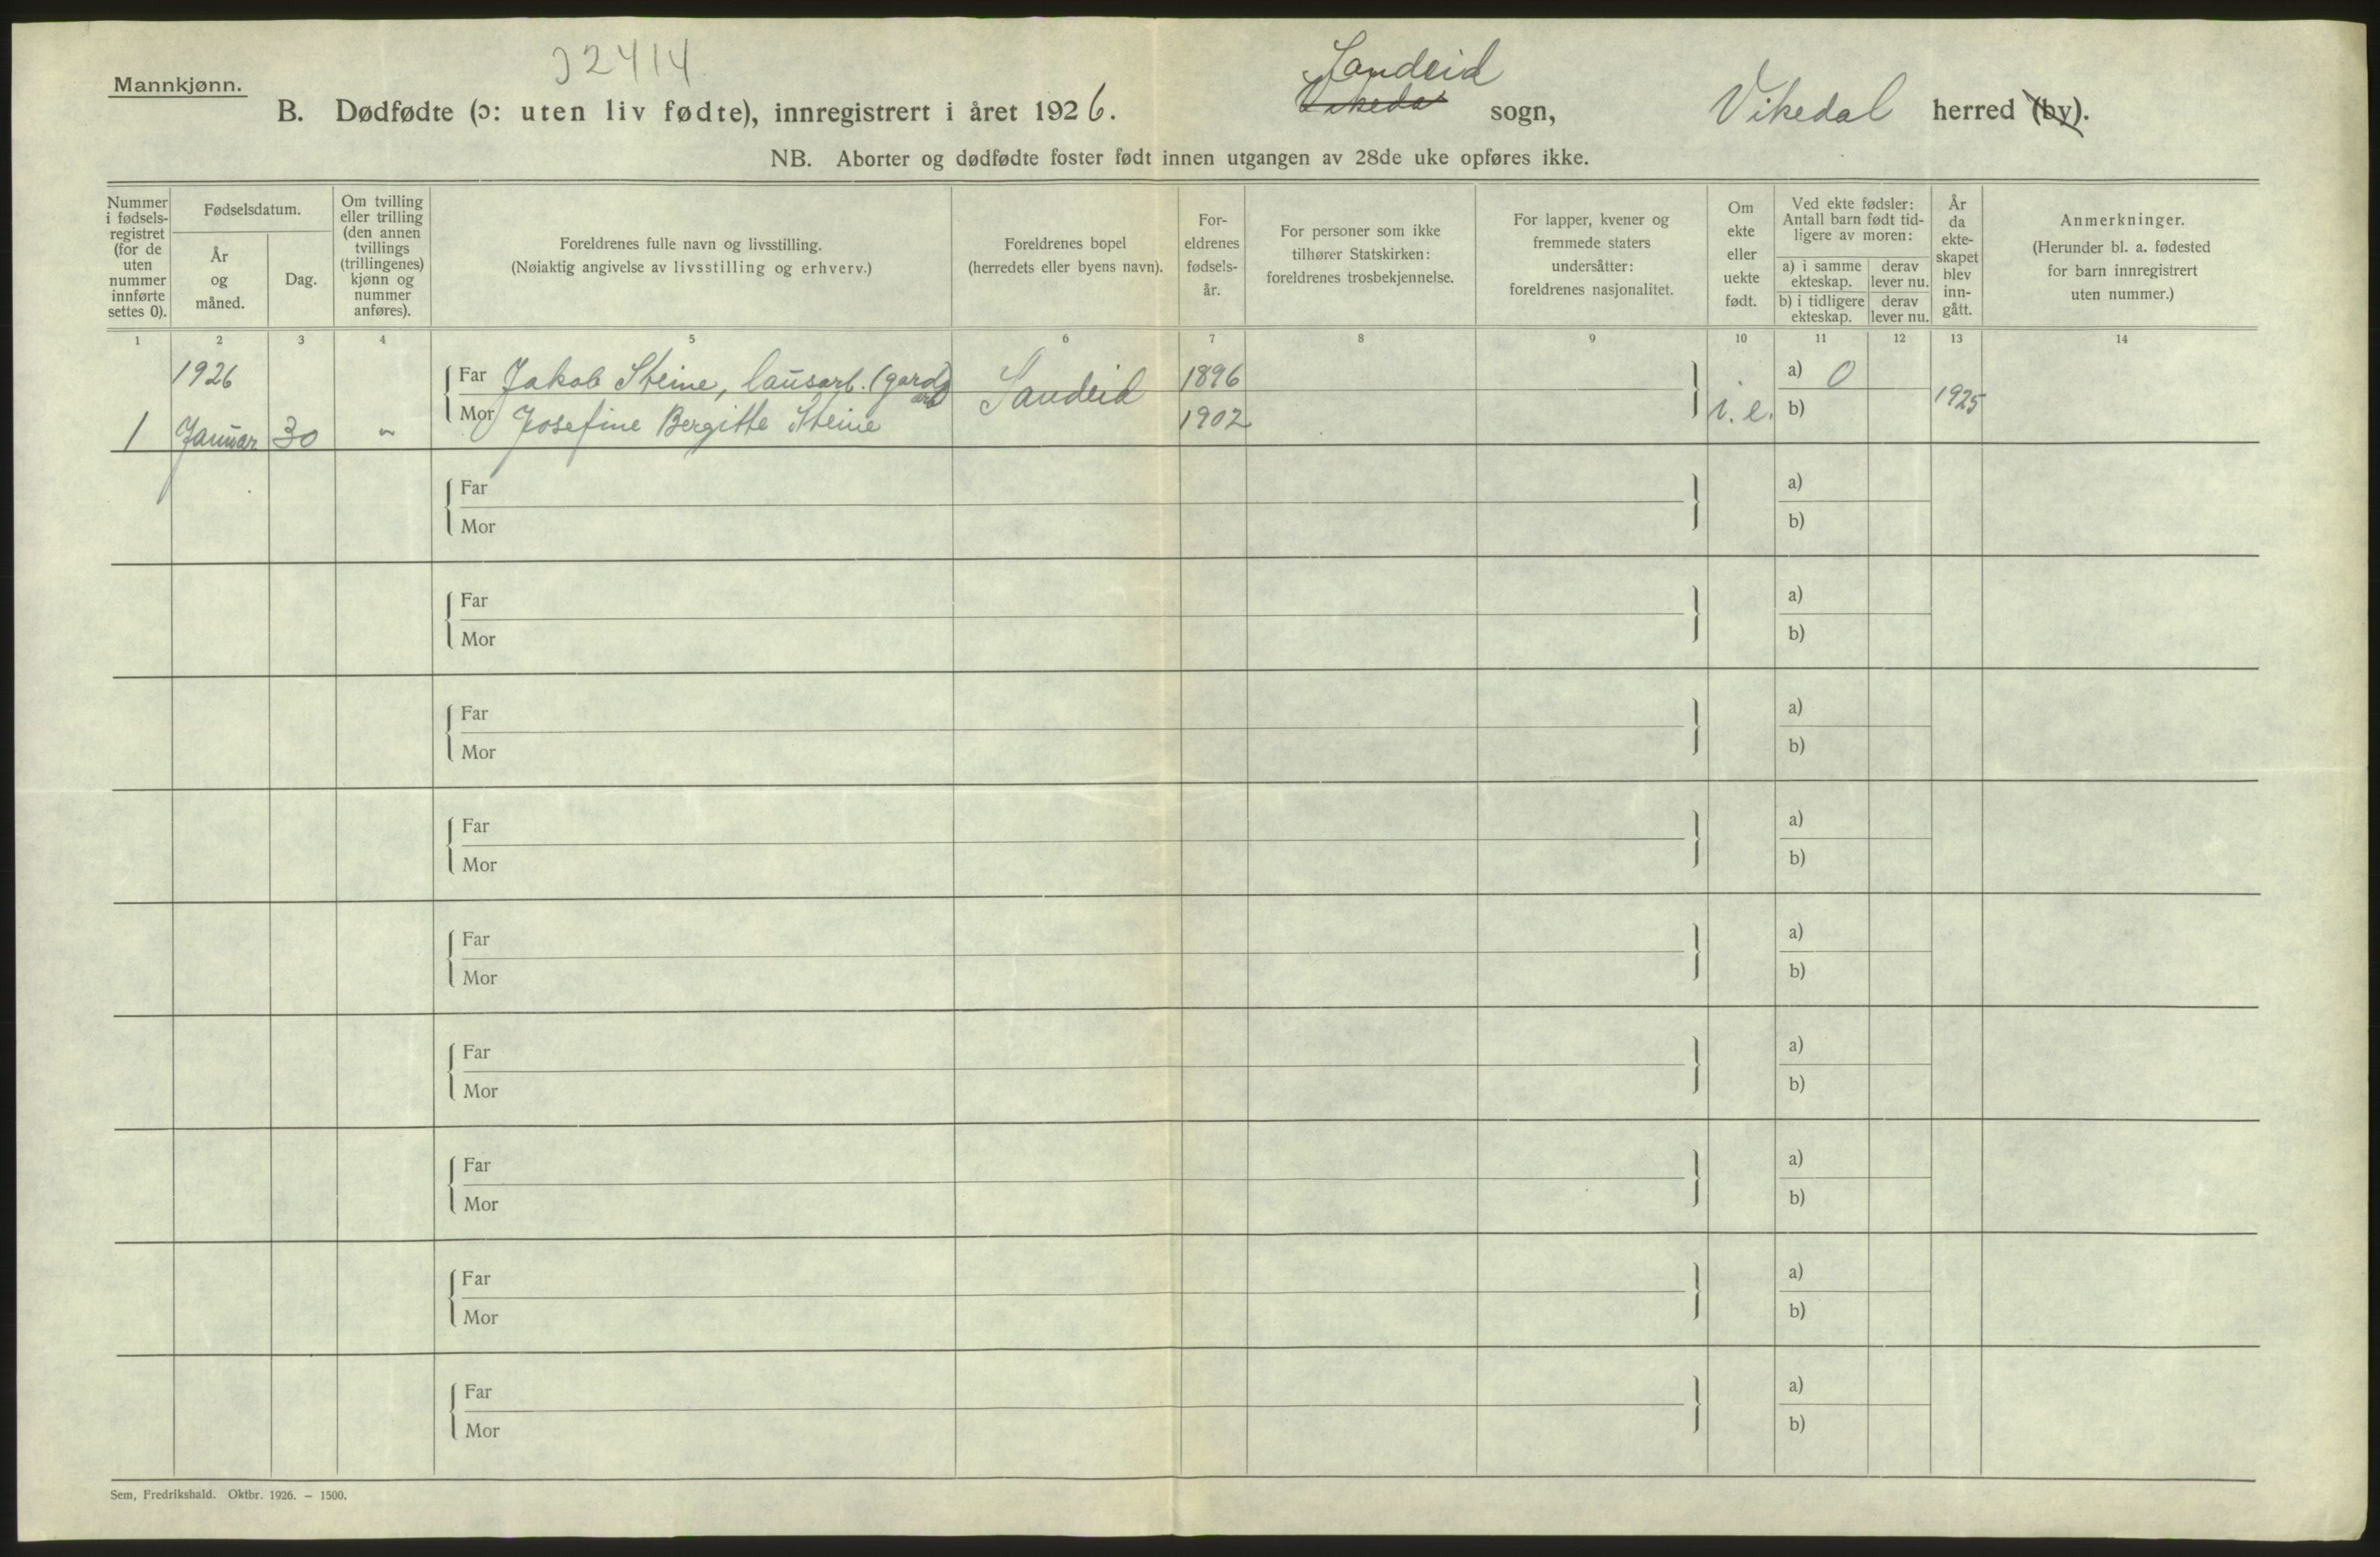 J2414
Mannkjønn.
B. Dødfødte (ɔ: uten liv fødte), innregistrert i året 1926. Sandeid Vikedal sogn, Vikedal herred (by).
NB. Aborter og dødfødte foster født innen utgangen av 28de uke opføres ikke.
Nummer
i fødsels-
registret
(for de
uten
nummer
innførte
settes 0).
Fødselsdatum.
År
og
måned.
Dag.
Om tvilling
eller trilling
(den annen
tvillings
(trillingenes)
kjønn og
nummer
anføres).
Foreldrenes fulle navn og livsstilling.
(Nøiaktig angivelse av livsstilling og erhverv.)
Foreldrenes bopel
(herredets eller byens navn).
For-
eldrenes
fødsels-
år.
For personer som ikke
tilhører Statskirken:
foreldrenes trosbekjennelse.
For lapper, kvener og
fremmede staters
undersåtter:
foreldrenes nasjonalitet.
Om
ekte
eller
uekte
født.
Ved ekte fødsler:
Antall barn født tid-
ligere av moren:
a) i samme
ekteskap.
derav
lever nu.
b) i tidligere
ekteskap.
derav
lever nu.
År
da
ekte-
skapet
blev
inn-
gått.
Anmerkninger.
(Herunder bl. a. fødested
for barn innregistrert
uten nummer.)
1 2 3 4 5 6 7 8 9 10 11 12 13 14
1926 Far Jakob Steine, lausarb. (gards arb) Sandeid 1896 a) 0
1 Januar 30 Mor Josefine Bergitte Steine 1902 i. e. b) 1925
Far a)
Mor b)
Far a)
Mor b)
Far a)
Mor b)
Far a)
Mor b)
Far a)
Mor b)
Far a)
Mor b)
Far a)
Mor b)
Far a)
Mor b)
Far a)
Mor b)
Sem, Fredrikshald. Oktbr. 1926. – 1500.